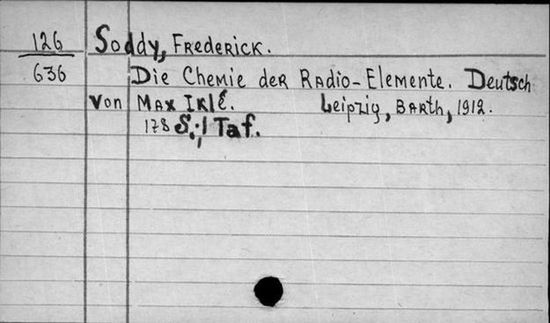 126 Soddy, Frederick.
636 Die Chemie der Radio-Elemente. Deutsch
von Max Iklé. Leipzig, Barth, 1912.
178 S.; 1 Taf.